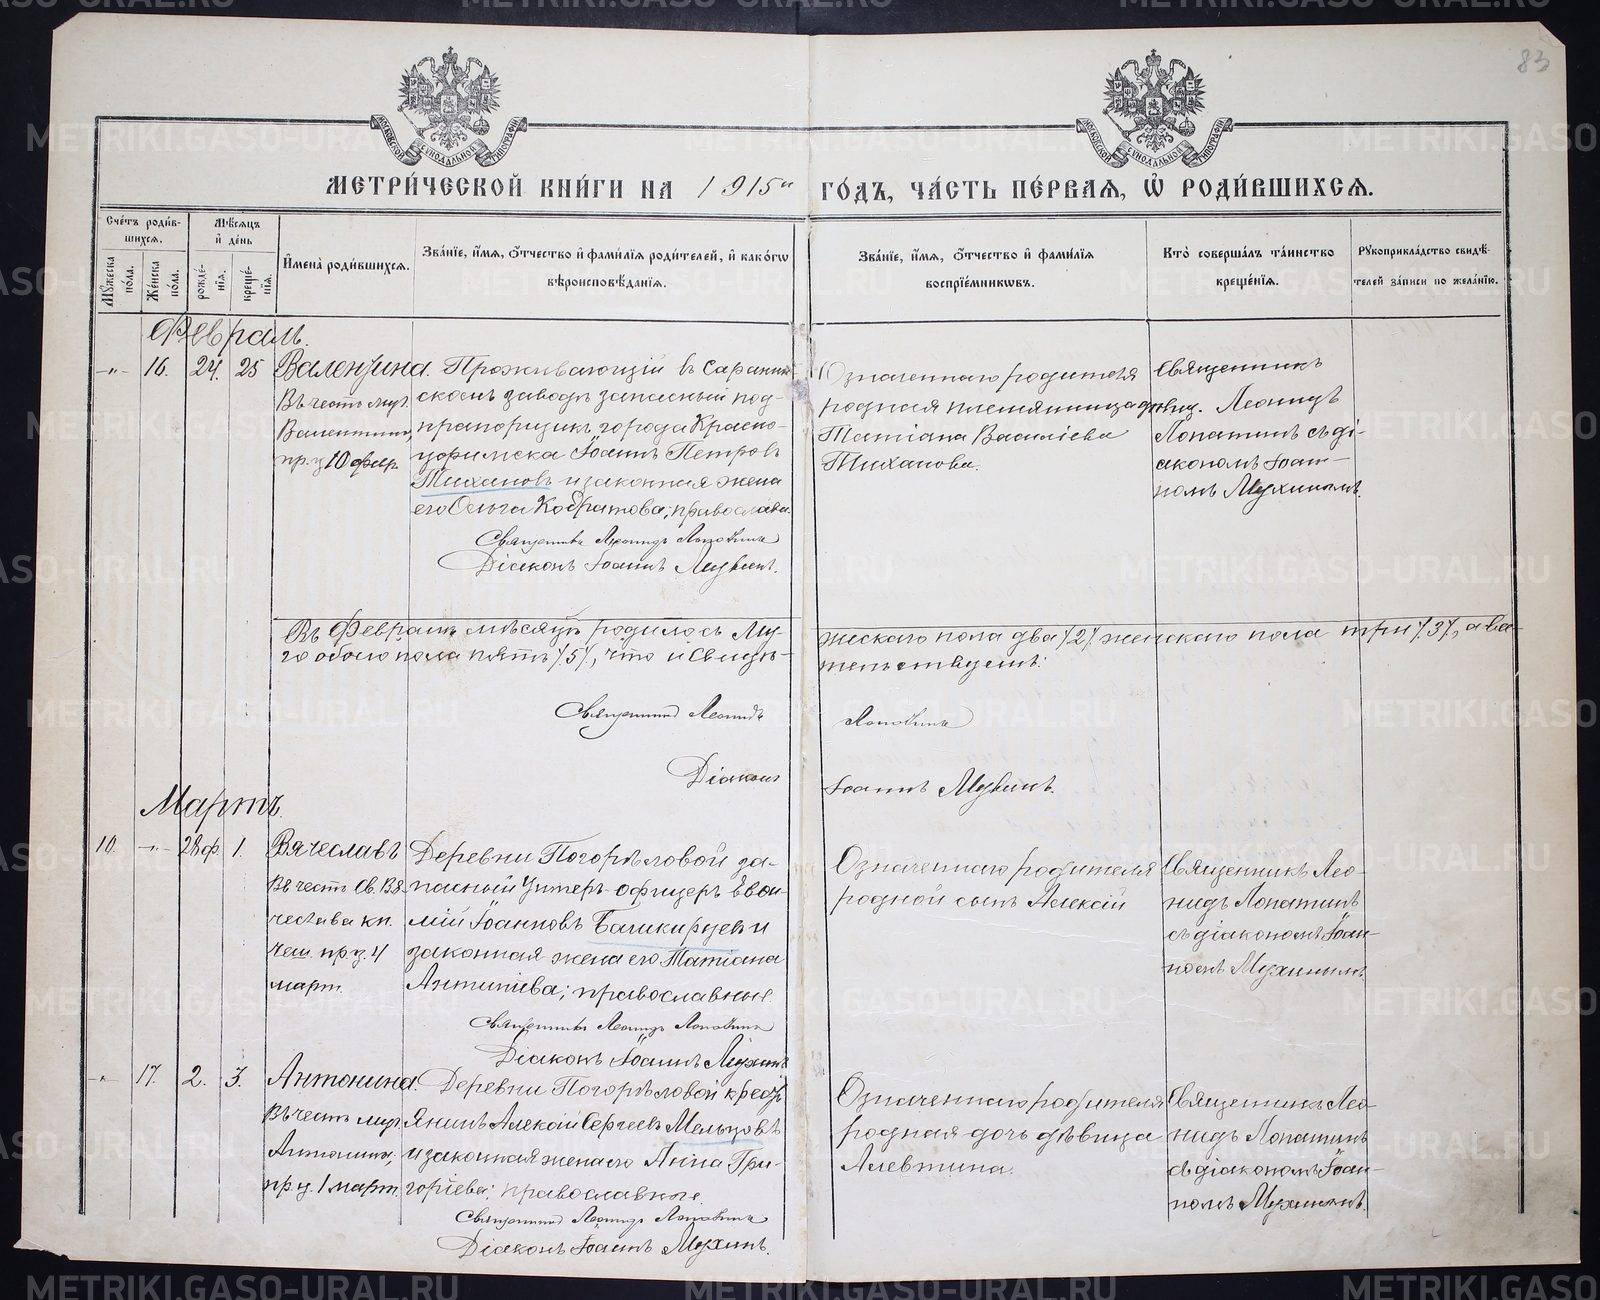 83
МОСКОВСКОЙ СУНОДАЛЬНОЙ ТИПОГРАФІИ
МОСКОВСКОЙ СУНОДАЛЬНОЙ ТИПОГРАФІИ
МЕТРИ́ЧЕСКОЙ КНИ́ГИ НА 1915й ГО́ДЪ, ЧА́СТЬ ПЕ́РВАЯ, Ѿ РОДИ́ВШИХСЯ.
Сче́тъ роди́в-
шихся.
Мѣ́сяцъ
и҆ де́нь
Му́жеска
по́ла.
Же́нска
по́ла.
рожде́-
нія.
креще́-
нія.
И҆мена̀ роди́вшихся.
Зва́ніе, и҆́мя, ѻ҆́тчество и҆ фами́лія роди́телей, и҆ како́гѡ
вѣроисповѣ́данія.
Зва́ніе, и҆́мя, ѻ҆́тчество и҆ фами́лія
воспріе́мникѡвъ.
Кто̀ соверша́лъ та́инство
креще́нія.
Рꙋкоприкла́дство свидѣ́-
телей за́писи по жела́нію.
Февраль.
-"- 16. 24. 25
Валентина.
Въ честь муч.
Валентины,
пр. ц 10 февр.
Проживающій въ Саранин-
скомъ заводѣ запасный под-
прапорщикъ города Красно-
уфимска Іоаннъ Петровъ
Тихановъ и законная жена
его Ольга Кодратова; православн.
Священникъ Леонидъ Лопатинъ
Діаконъ Іоаннъ Мухинъ.
Означеннаго родителя
родная племянница дѣвиц.
Татіана Васильева
Тиханова.
Священникъ
Леонидъ
Лопатинъ съ ді-
акономъ Іоан-
номъ Мухинымъ.
Въ Февралѣ мѣсяцѣ родилось му-
жескаго пола два /2/ женскаго пола три /3/, а все-
го обоего пола пять /5/, что и свидѣ-
тельствуемъ:
Священникъ Леонидъ
Лопатинъ
Діаконъ
Іоаннъ Мухинъ.
Мартъ.
10. -"- 28ф 1.
Вячеславъ
Въ честь Св. Вя
чеслава кн.
Чеш. пр. ц. 4
март.
Деревни Погорѣловой за-
пасный унтеръ-офицеръ Евѳи-
мій Іоанновъ Башкирцевъ и
законная жена его Татіана
Антипіева; православные.
Священникъ Леонидъ Лопатинъ
Діаконъ Іоаннъ Мухинъ
Означеннаго родителя
родной сынъ Алексій
Священникъ Лео-
нидъ Лопатинъ
съ діакономъ Іоан-
номъ Мухинымъ.
-"- 17. 2. 3.
Антонина.
Въ честь муч
Антонины,
пр. ц. 1 март.
Деревни Погорѣловой кресть
янинъ Алексій Сергеевъ Мельцовъ
и законная жена его Анна Гри-
горіева; православные.
Священникъ Леонидъ Лопатинъ
Діаконъ Іоаннъ Мухинъ.
Означеннаго родителя
родная дочь дѣвица
Алевтина.
Священникъ Лео-
нидъ Лопатинъ
съ діакономъ Іоан-
номъ Мухинымъ.
METRIKI.GASO-URAL.RU